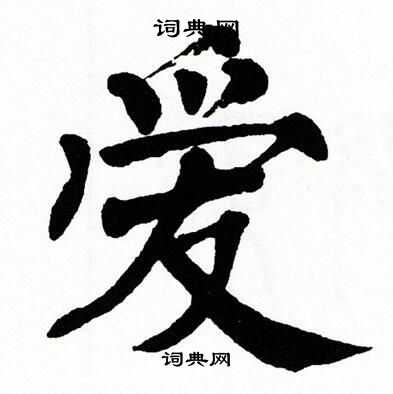 词典网
爱
词典网